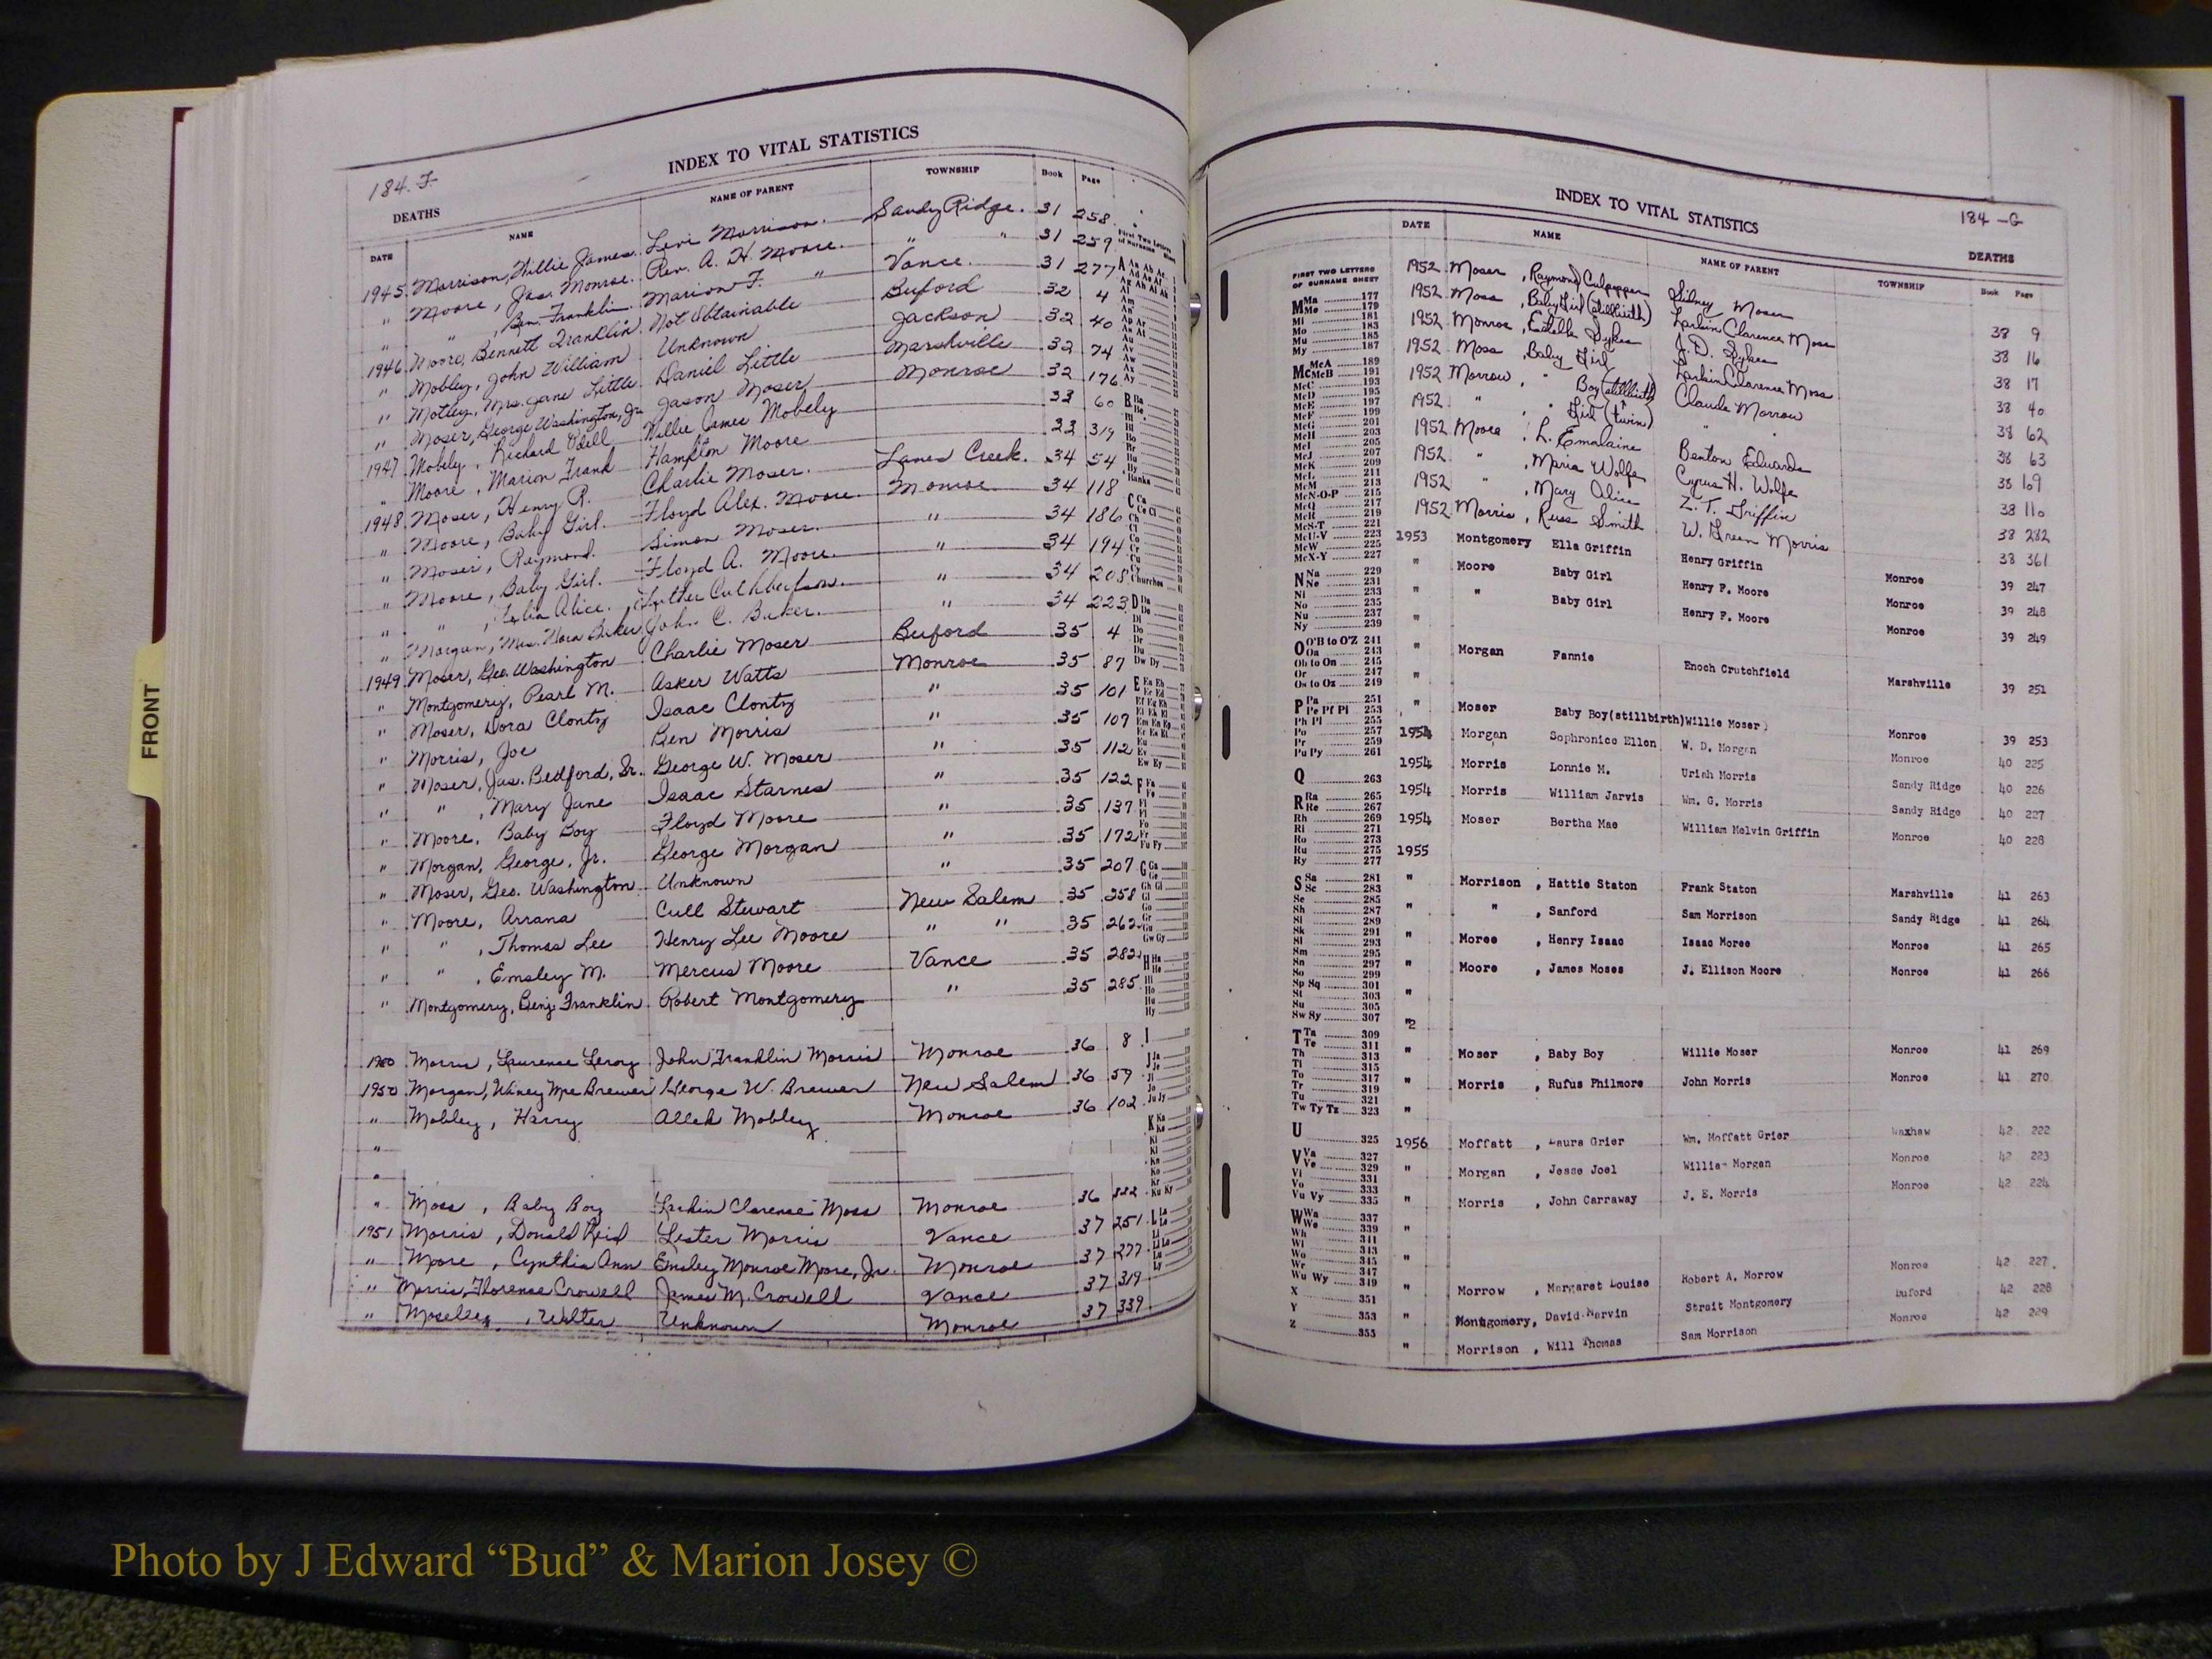 184-F
INDEX TO VITAL STATISTICS
DEATHS
DATE NAME NAME OF PARENT TOWNSHIP Book Page
1945 Morrison, Willie James. Levi Morrison. Sandy Ridge. 31 258
" Moore, Jas. Monroe. Rev. A. H. Moore. " " 31 259
" " , Ben. Franklin Marion F. " Vance. 31 277
1946 Moore, Bennett Franklin Not Obtainable Buford 32 4
" Mobley, John William Unknown Jackson 32 40
" Motley, Mrs. Jane Little Daniel Little Marshville 32 74
" Moser, George Washington, Jr. Jason Moser Monroe 32 176
1947 Mobely, Richard Odell Willie James Mobely 33 60
" Moore, Marion Frank Hampton Moore 33 319
1948 Moser, Henry R. Charlie Moser. Lanes Creek. 34 54
" Moore, Baby Girl. Floyd Alex. Moore Monroe 34 118
" Moser, Raymond. Simon Moser. " 34 186
" Moore, Baby Girl. Floyd A. Moore. " 34 194
" " , Alice. Luther Culhbertson. " 34 208
" Morgan, Mrs. Nora Baker John C. Baker. " 34 223
1949 Moser, Geo. Washington Charlie Moser Buford 35 4
" Montgomery, Pearl M. Asker Watts Monroe 35 87
" Moser, Dora Clontz Isaac Clontz " 35 101
" Morris, Joe Ben Morris " 35 107
" Moser, Jas. Bedford, Sr. George W. Moser " 35 112
" " , Mary Jane Isaac Starnes " 35 122
" Moore, Baby Boy Floyd Moore " 35 137
" Morgan, George, Jr. George Morgan " 35 172
" Moser, Geo. Washington Unknown " 35 207
" Moore, Arrana Cull Stewart New Salem 35 258
" " , Thomas Lee Henry Lee Moore " " 35 262
" " , Emsley M. Mercus Moore Vance 35 282
" Montgomery, Benj. Franklin Robert Montgomery " 35 285
1950 Morris, Laurence Leroy John Franklin Morris Monroe 36 8
1950 Morgan, Mae Brewer George W. Brewer New Salem 36 59
" Mobley, Harry Allek Mobley Monroe 36 102
"
"
" Moss, Baby Boy Larkin Clarence Moss Monroe 36 322
1951 Morris, Donald Reid Lester Morris Vance 37 251
" Moore, Cynthia Ann Emsley Monroe Moore, Jr. Monroe 37 277
" Morris, Florence Crowell James M. Crowell Vance 37 319
" Moseley, Walter Unknown Monroe 37 339
INDEX TO VITAL STATISTICS
184-G
DEATHS
DATE NAME NAME OF PARENT TOWNSHIP Book Page
1952 Moser, Raymond Culpepper Sidney Moser 38 9
1952 Moss, Baby Girl (stillbirth) Larkin Clarence Moss 38 16
1952 Monroe, Edith Sykes J. D. Sykes 38 17
1952 Moss, Baby Girl Larkin Clarence Moss 38 40
1952 Morrow, " Boy (stillbirth) Claude Morrow 38 62
1952 " , Girl (twin) " 38 63
1952 Moore, L. Emalaine Benton Edwards 38 109
1952 " , Maria Wolfe Cyrus H. Wolfe 38 110
1952 " , Mary Alice Z. T. Griffin 38 282
1952 Morris, Russ Smith W. Green Morris 38 361
1953 Montgomery Ella Griffin Henry Griffin Monroe 39 247
" Moore Baby Girl Henry F. Moore Monroe 39 248
" " Baby Girl Henry F. Moore Monroe 39 249
" Morgan Fannie Enoch Crutchfield Marshville 39 251
" Moser Baby Boy(stillbirth) Willie Moser Monroe 39 253
1954 Morgan Sophronice Ellen W. D. Morgan Monroe 40 225
1954 Morris Lonnie M. Uriah Morris Sandy Ridge 40 226
1954 Morris William Jarvis Wm. G. Morris Sandy Ridge 40 227
1954 Moser Bertha Mae William Melvin Griffin Monroe 40 228
1955
" Morrison , Hattie Staton Frank Staton Marshville 41 263
" " , Sanford Sam Morrison Sandy Ridge 41 264
" Moree , Henry Isaac Isaac Moree Monroe 41 265
" Moore , James Moses J. Ellison Moore Monroe 41 266
"
"2
" Moser , Baby Boy Willie Moser Monroe 41 269
" Morris , Rufus Philmore John Morris Monroe 41 270
"
1956 Moffatt , Laura Grier Wm. Moffatt Grier Waxhaw 42 222
" Morgan , Jesse Joel Willie Morgan Monroe 42 223
" Morris , John Carraway J. E. Morris Monroe 42 224
"
"
" Morrow , Margaret Louise Robert A. Morrow Monroe 42 227
" Montgomery, David Marvin Strait Montgomery Buford 42 228
" Morrison , Will Thomas Sam Morrison Monroe 42 229
FIRST TWO LETTERS
OF SURNAME SHEET
M Ma 177
Me 179
Mi 181
Mo 183
Mu 185
My 187
Mc McA 189
McB 191
McC 193
McD 195
McE 197
McF 199
McG 201
McH 203
McI 205
McJ 207
McK 209
McL 211
McM 213
McN-O-P 215
McQ 217
McR 219
McS-T 221
McU-V 223
McW 225
McX-Y 227
N Na 229
Ne 231
Ni 233
No 235
Nu 237
Ny 239
O O'H to O'Z 241
Oa 243
Ob to On 245
Or 247
Os to Oz 249
P Pa 251
Pe Pf Pi 253
Ph Pl 255
Po 257
Pr 259
Pu Py 261
Q 263
R Ra 265
Re 267
Rh 269
Ri 271
Ro 273
Ru 275
Ry 277
S Sa 281
Sc 283
Se 285
Sh 287
Si 289
Sk 291
Sl 293
Sm 295
Sn 297
So 299
Sp Sq 301
St 303
Su 305
Sw Sy 307
T Ta 309
Te 311
Th 313
Ti 315
To 317
Tr 319
Tu 321
Tw Ty Tz 323
U 325
V Va 327
Ve 329
Vi 331
Vo 333
Vu Vy 335
W Wa 337
We 339
Wh 341
Wi 343
Wo 345
Wr 347
Wu Wy 349
X 351
Y 353
Z 355
FRONT
Photo by J Edward “Bud” & Marion Josey ©